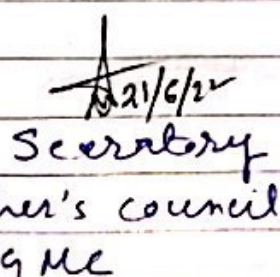 21/6/22
Secrratory
ner's council
G MC